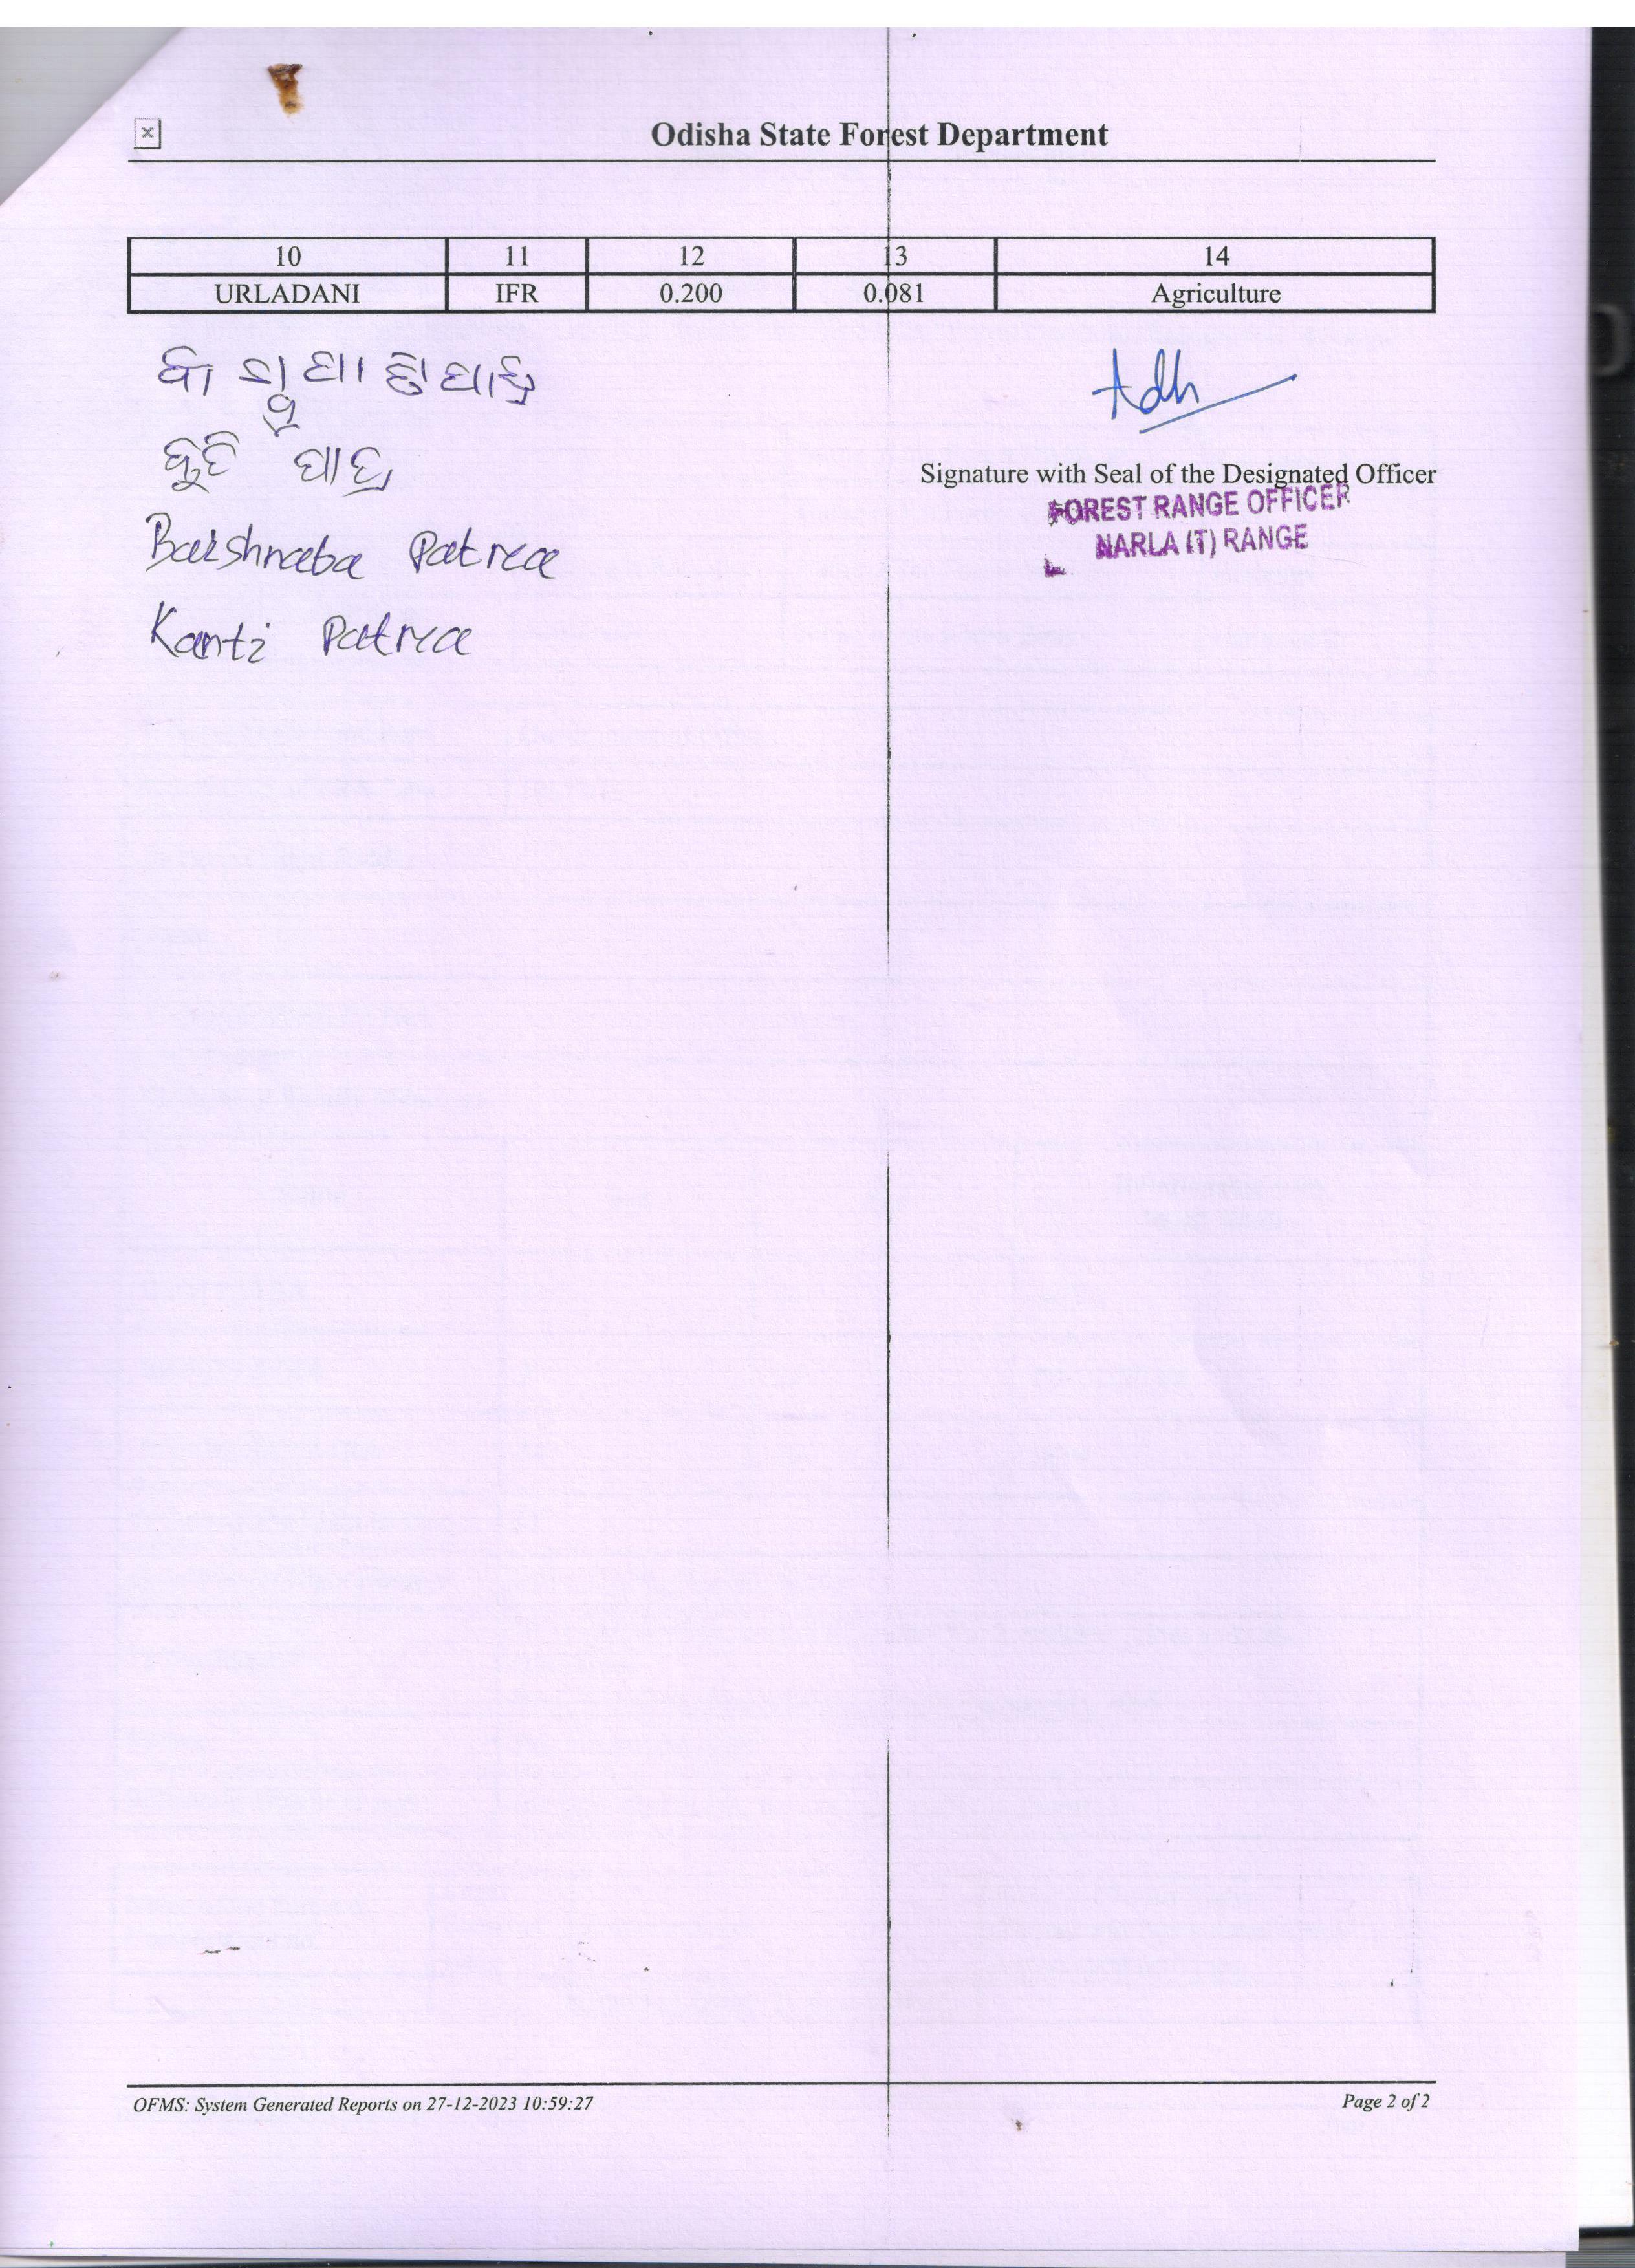 Odisha State Forest Department
10 11 12 13 14
URLADANI IFR 0.200 0.081 Agriculture
Adh
ପାତ୍ର
Signature with Seal of the Designated Officer
FOREST RANGE OFFICER
NARLA (T) RANGE
Baishnaba Patra
Kanti Patra
OFMS: System Generated Reports on 27-12-2023 10:59:27 Page 2 of 2